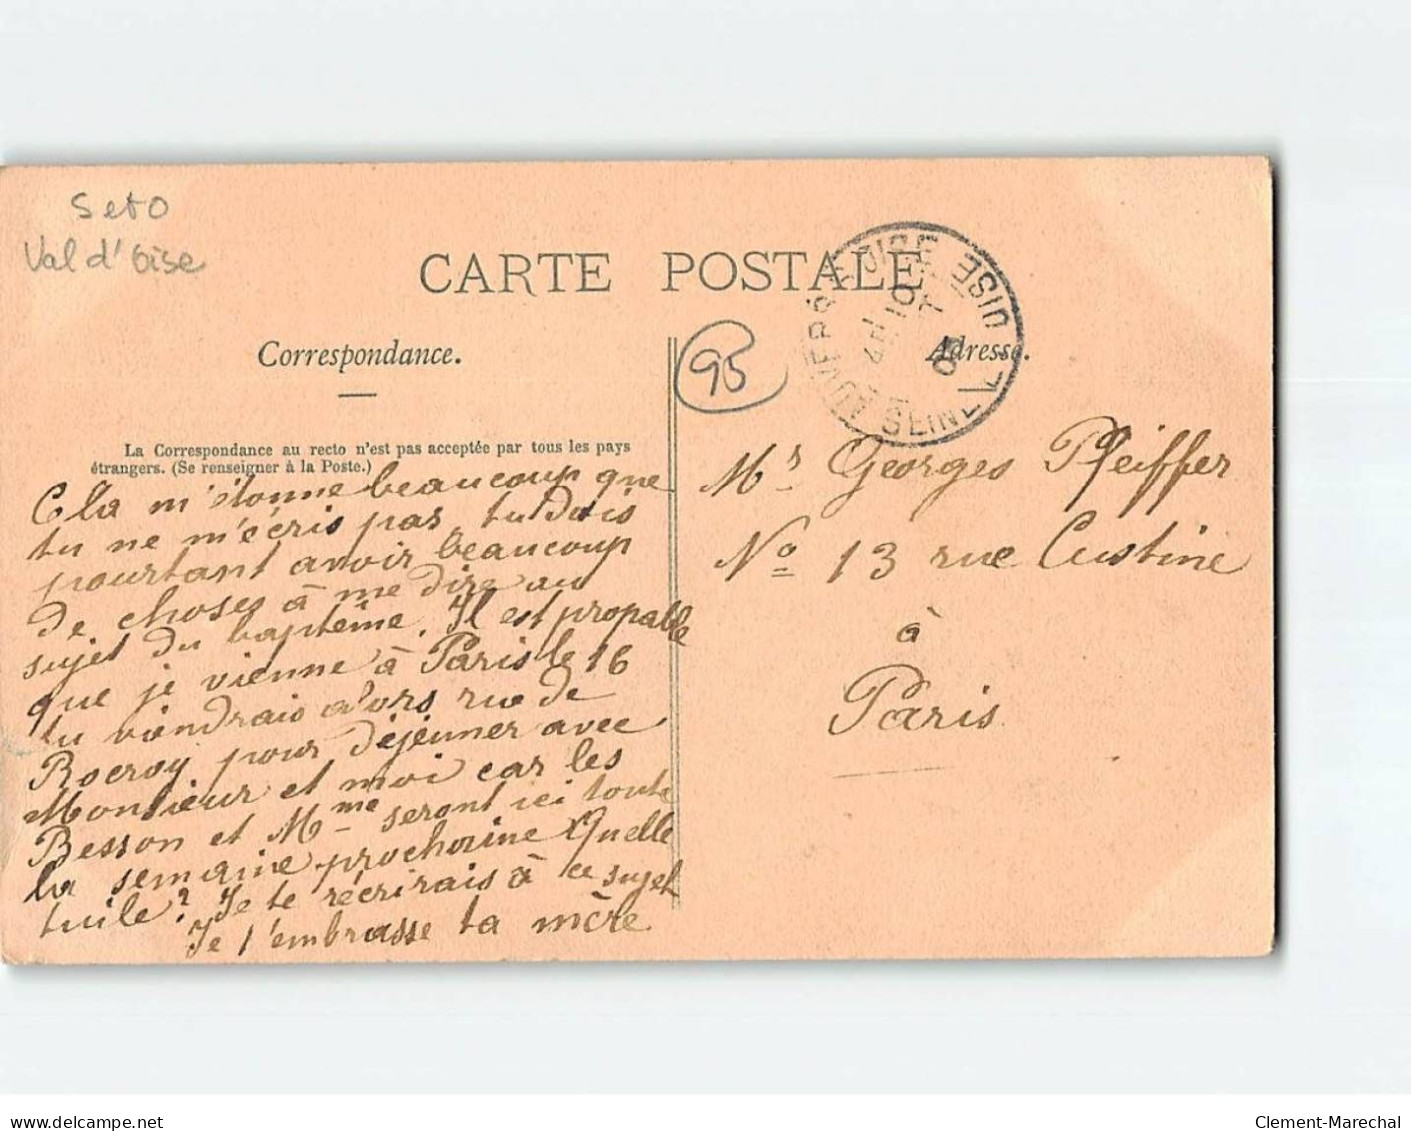 Set0
Val d'oise
CARTE POSTALE
Correspondance.
95
Adresse.
AUVERS S OISE
SEINE
OISE
10
La Correspondance au recto n'est pas acceptée par tous les pays
étrangers. (Se renseigner à la Poste.)
Cela m'étonne beaucoup que
tu ne m'écris pas, tu Dois
pourtant avoir beaucoup
de choses à me dire au
sujet du baptême. Il est propable
que je vienne à Paris le 16
tu viendrais alors rue de
Rocroy pour déjeuner avec
Monsieur et moi car les
Besson et Mme seront ici toute
la semaine prochaine Quelle
tuile? Je te récrirais à ce sujet
Je t'embrasse ta mère
Mr Georges Pfeiffer
No 13 rue Custine
à
Paris
www.delcampe.net
Clement-Marechal